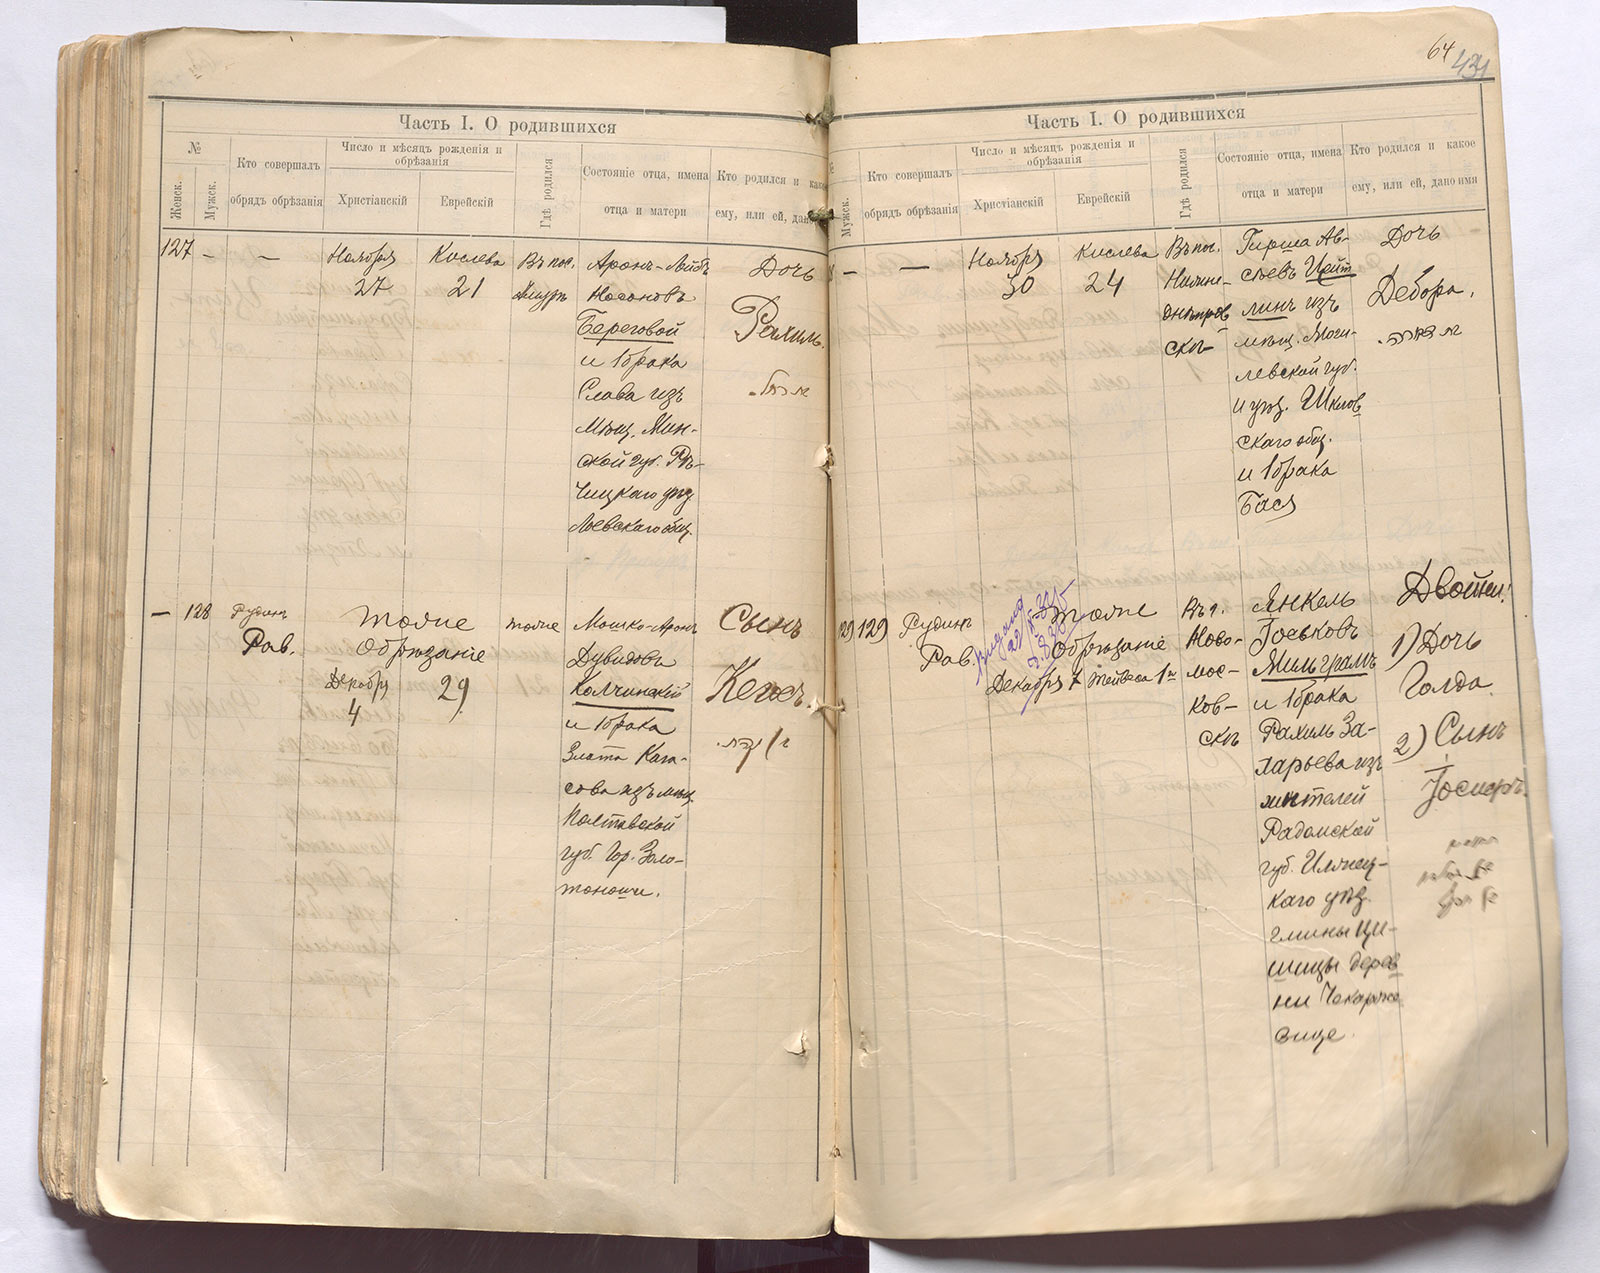 64
434
Часть I. О родившихся
№
Женск.
Мужск.
Кто совершалъ
обрядъ обрѣзанія
Число и мѣсяцъ рожденія и
обрѣзанія
Христіанскій
Еврейскій
Гдѣ родился
Состояніе отца, имена
отца и матери
Кто родился и какое
ему, или ей, дано
127 — —
Ноября
27
Кислева
21
Въ пос.
Амуръ
Аронъ-Лейбъ
Носоновъ
Береговой
и 1 брака
Слава изъ
мѣщ. Мин-
ской губ. Рѣ-
чицкаго уѣзд
Лоевскаго общ.
Дочь
Рахиль.
— 128
Рудинъ
Рав.
тоже
Обрѣзаніе
Декабря
4
29
тоже
Мошко-Аронъ
Дувидовъ
Колчинскій
и 1 брака
Злата
сова изъ мѣщ.
Полтавской
губ. Гор. Золо-
тоноши.
Сынъ
Часть I. О родившихся
Мужск.
Кто совершалъ
обрядъ обрѣзанія
Число и мѣсяцъ рожденія и
обрѣзанія
Христіанскій
Еврейскій
Гдѣ родился
Состояніе отца, имена
отца и матери
Кто родился и какое
ему, или ей, дано имя
— —
Ноября
30
Кислева
24
Въ пос.
Нижне-
днѣпров
скъ
Гирша Ав-
сѣевъ Цейт
линъ изъ
мѣщ. Моги-
левской губ.
и уѣзд. Шклов
скаго общ.
и 1 брака
Бася
Дочь
Дебора.
129 129
Рудинъ
Рав.
Выдана
тоже
Обрѣзаніе
Декабря 7 Тейвеса 1
Въ г.
Ново-
мос-
ков-
скъ
Янкель
Іоськовъ
Мильграмъ
и 1 брака
Рахиль За-
харьева изъ
жителей
Радомской
губ. Илжец-
каго уѣзд.
гмины Ци-
шицы дерев
ни Чекарже
вице.
Двойни:
1) Дочь
Голда.
2) Сынъ
Іосифъ.